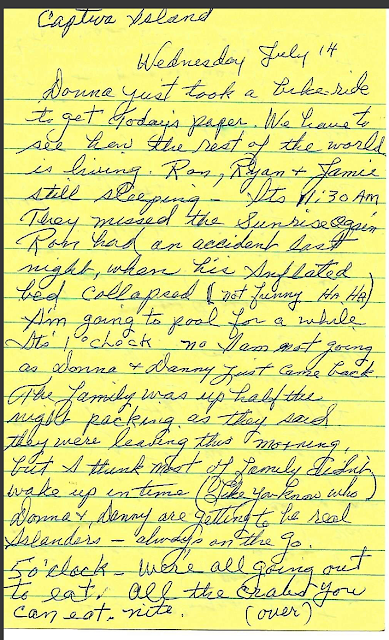 Captiva Island
Wednesday July 14
Donna just took a bike-ride
to get todays paper. We have to
see how the rest of the world
is living. Ron, Ryan + Jamie
still sleeping - Its 11:30 AM
They missed the Sunrise again
Ron had an accident last
night, when his Inflated
bed collapsed (not funny HA HA)
I'm going to pool for a while
Its 1 o'clock no I am not going
as Donna + Danny just came back
The family was up half the
night packing as they said
they were leaving this morning,
but I think most of family didn't
wake up in time (like you know who)
Donna + Danny are getting to be real
Islanders - always on the go.
5 o'clock - We're all going out
to eat. All the crabs you
can eat. nite. (over)